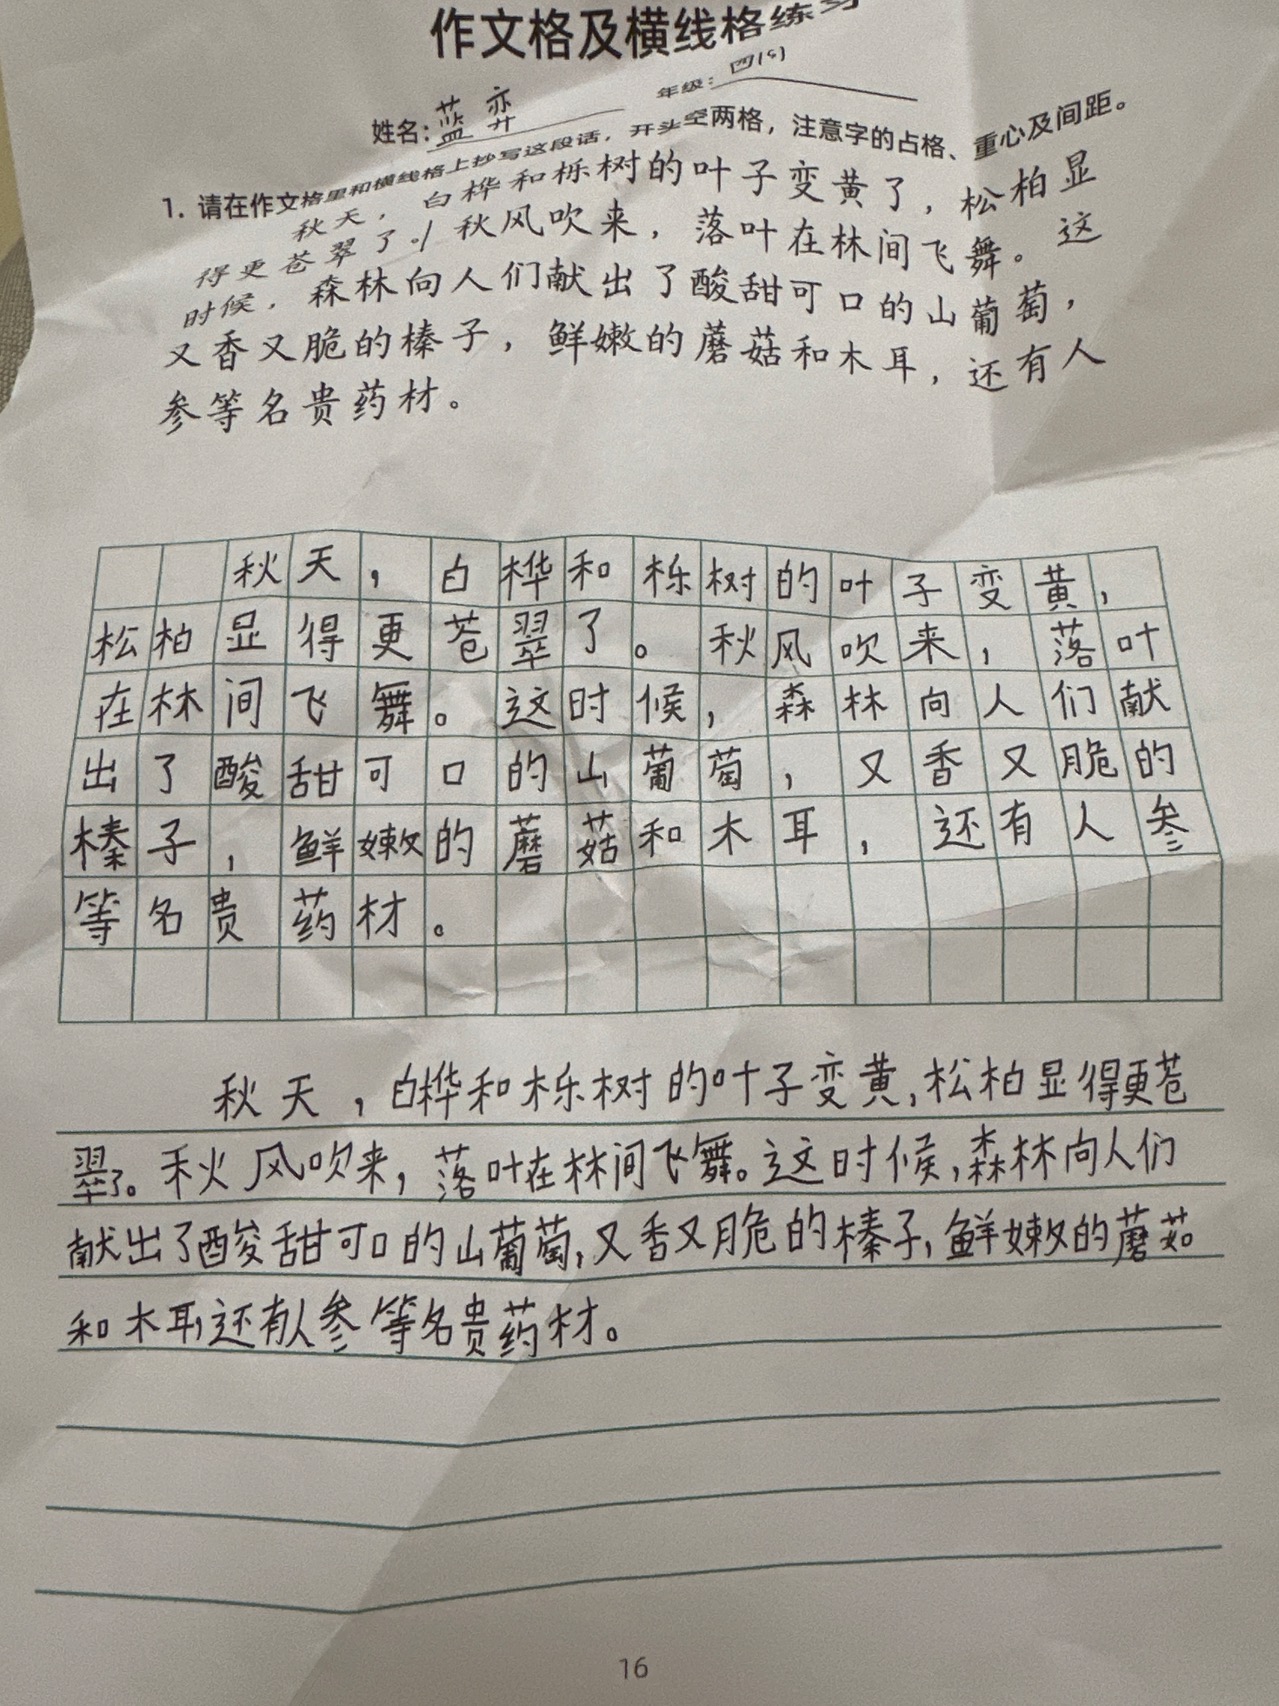 作文格及横线格练习
姓名：蓝弈 年级：四(9)
1. 请在作文格里和横线格上抄写这段话，开头空两格，注意字的占格、重心及间距。
秋天，白桦和栎树的叶子变黄了，松柏显
得更苍翠了。/秋风吹来，落叶在林间飞舞。这
时候，森林向人们献出了酸甜可口的山葡萄，
又香又脆的榛子，鲜嫩的蘑菇和木耳，还有人
参等名贵药材。
秋天，白桦和栎树的叶子变黄，
松柏显得更苍翠了。秋风吹来，落叶
在林间飞舞。这时候，森林向人们献
出了酸甜可口的山葡萄，又香又脆的
榛子，鲜嫩的蘑菇和木耳，还有人参
等名贵药材。
秋天，白桦和栎树的叶子变黄，松柏显得更苍
翠了。秋风吹来，落叶在林间飞舞。这时候，森林向人们
献出了酸甜可口的山葡萄，又香又脆的榛子，鲜嫩的蘑菇
和木耳，还有人参等名贵药材。
16